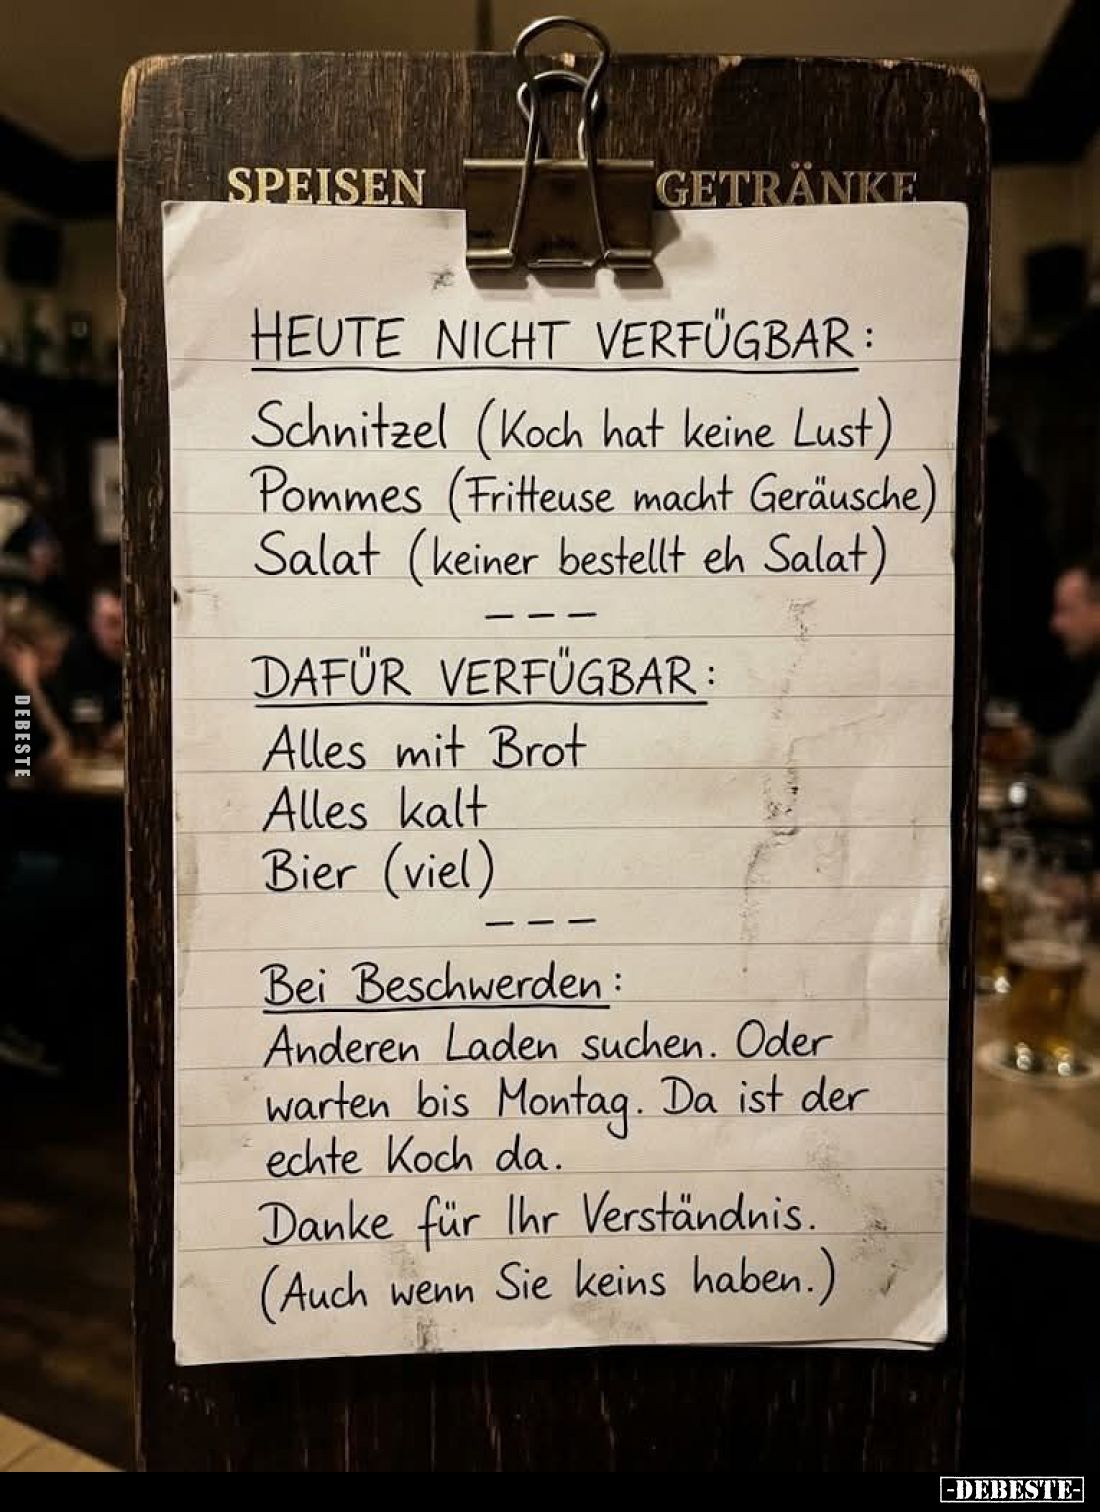 SPEISEN GETRÄNKE
HEUTE NICHT VERFÜGBAR:
Schnitzel (Koch hat keine Lust)
Pommes (Fritteuse macht Geräusche)
Salat (keiner bestellt eh Salat)
---
DAFÜR VERFÜGBAR:
Alles mit Brot
Alles kalt
Bier (viel)
---
Bei Beschwerden:
Anderen Laden suchen. Oder
warten bis Montag. Da ist der
echte Koch da.
Danke für Ihr Verständnis.
(Auch wenn Sie keins haben.)
DEBESTE
-DEBESTE-